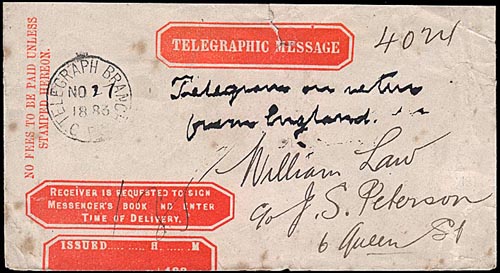 NO FEES TO BE PAID UNLESS
STAMPED HEREON.
TELEGRAPHIC MESSAGE
TELEGRAPH BRANCH
NO 27
1883
Telegram on return
from England.
William Law
c/o J. S. Peterson
6 Queen St
RECEIVER IS REQUESTED TO SIGN
MESSENGER'S BOOK AND ENTER
TIME OF DELIVERY.
ISSUED......H.......M